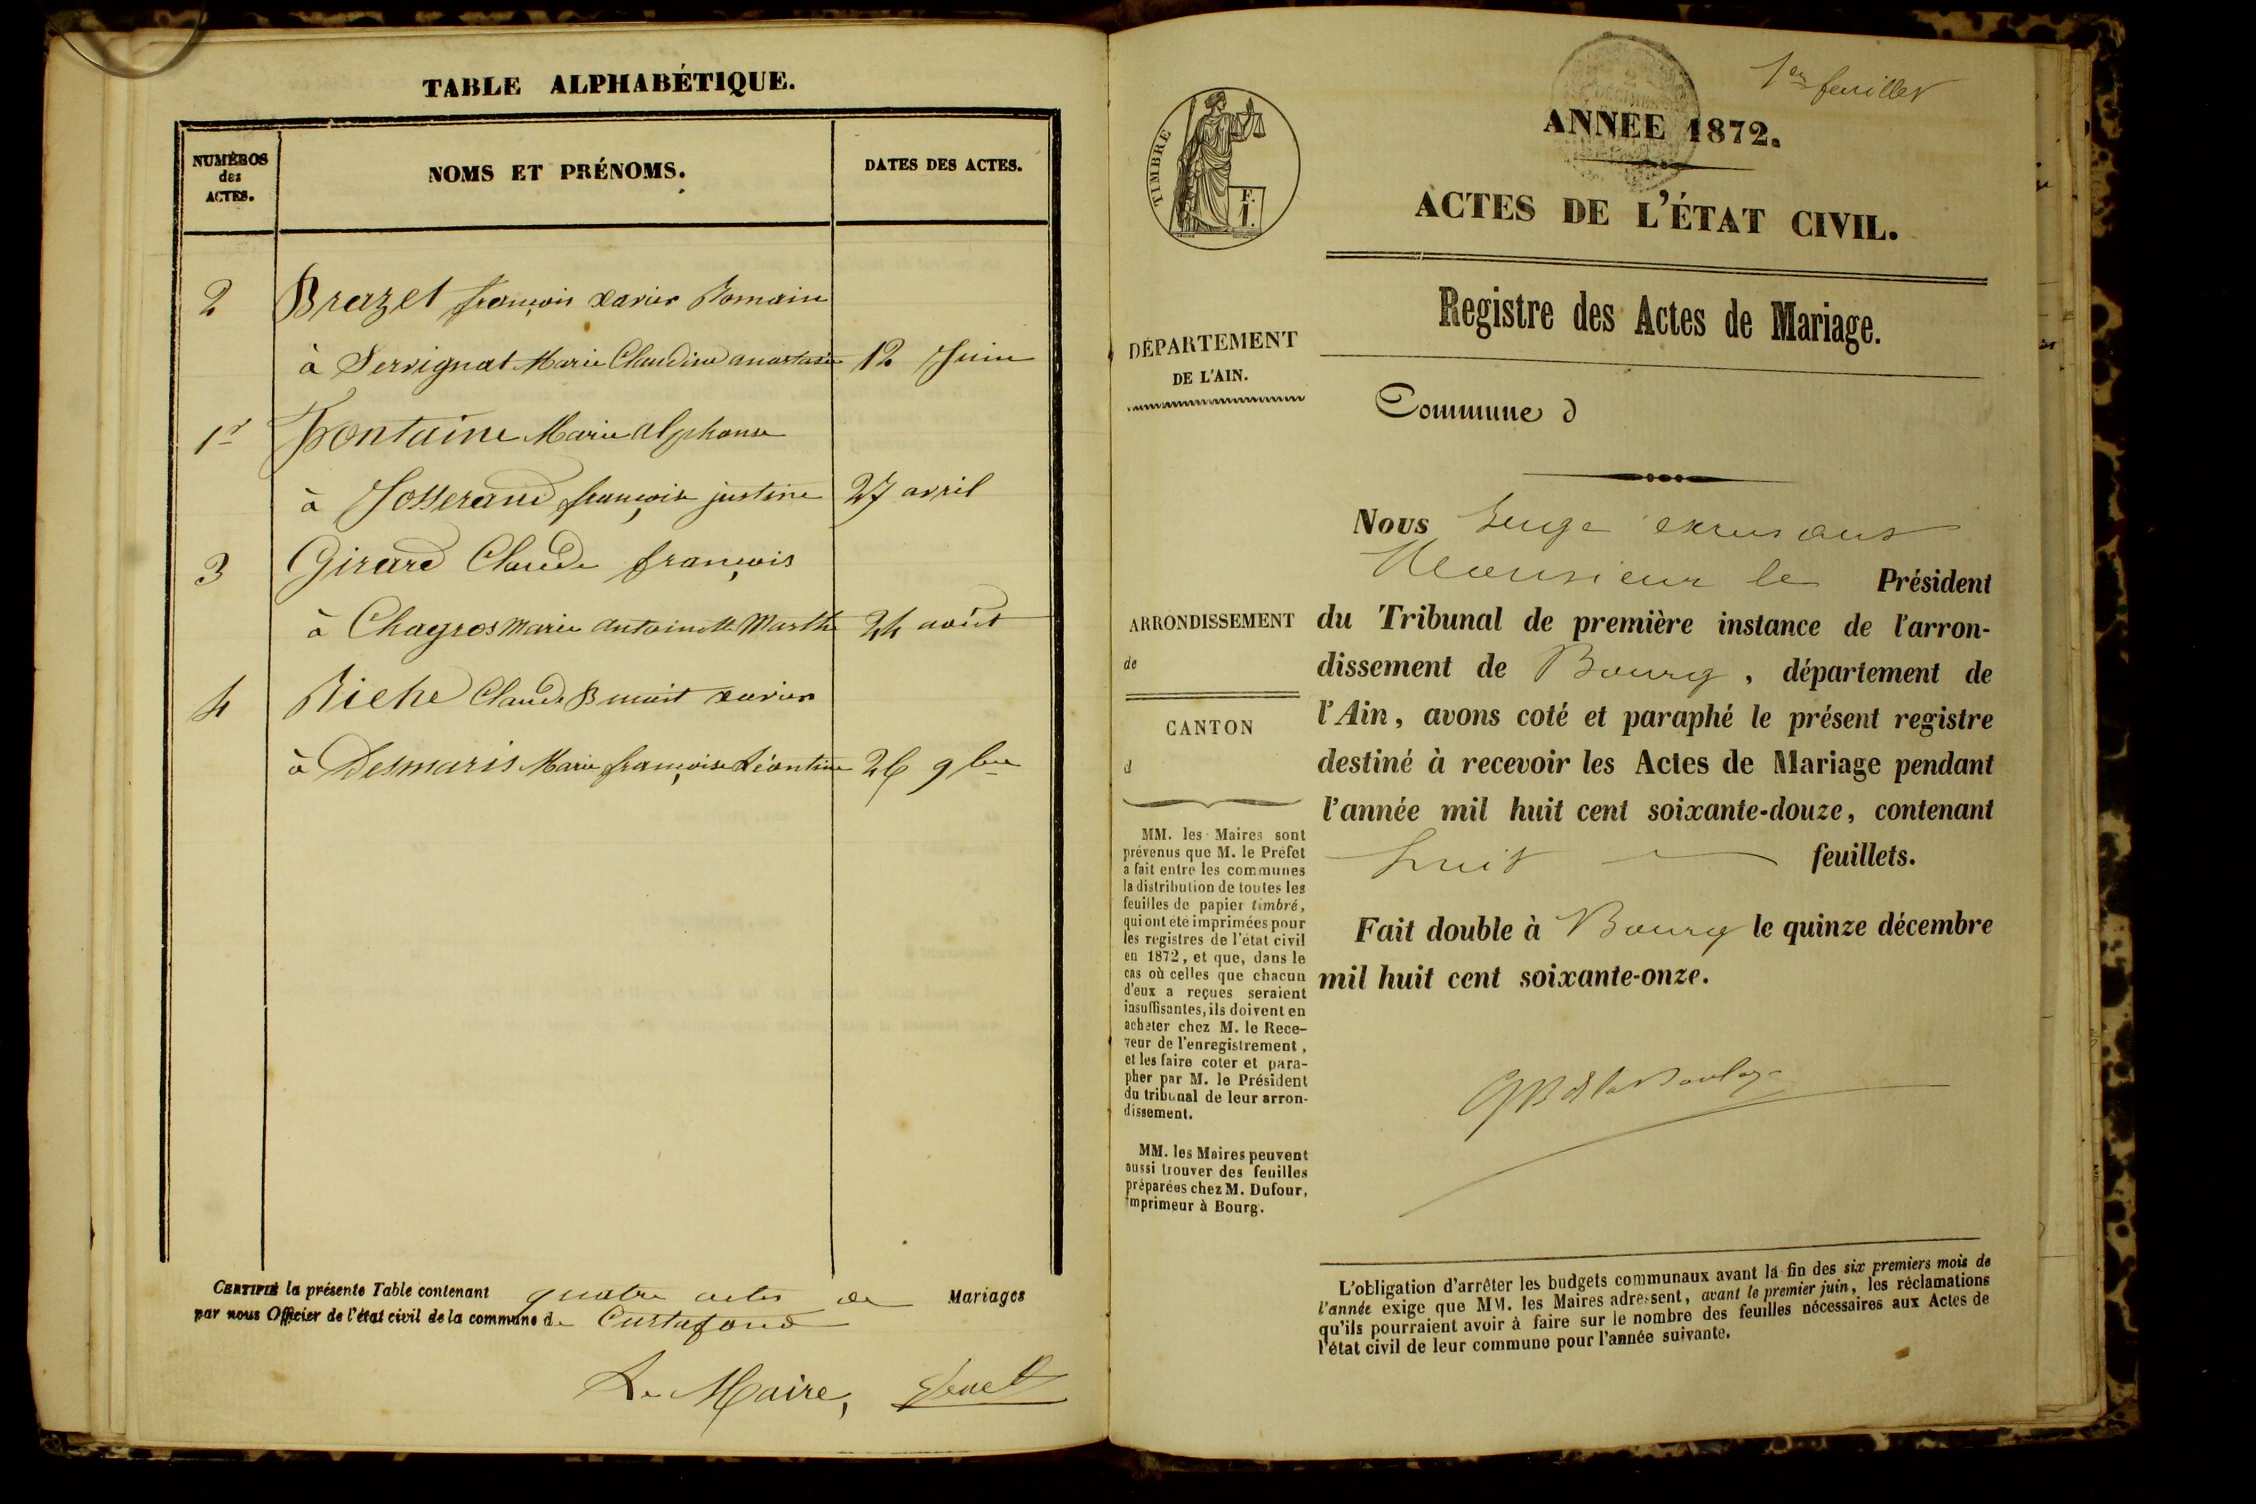 TABLE ALPHABÉTIQUE.
NUMÉROS
des
ACTES.
NOMS ET PRÉNOMS.
DATES DES ACTES.
2 Brazet françois xavier Romain
à Servignat Marie Claudine anastasie 12 Juin
1r Fontaine Marie alphonse
à Josserand françoise justine 27 avril
3 Girard Claude françois
à Chagros Marie antoinette Marthe 24 août
4 Riche Claude Benoit xavier
à Desmaris Marie françoise Léontine 26 9bre
CERTIFIÉ la présente Table contenant quatre actes de Mariages
par nous Officier de l'état civil de la commune de Curtafond
Le Maire,
1er feuillet
TIMBRE
F.
1.
ANNEE 1872.
ACTES DE L'ÉTAT CIVIL.
Registre des Actes de Mariage.
DÉPARTEMENT
DE L'AIN.
Commune d
ARRONDISSEMENT
de
CANTON
d
MM. les Maires sont
prévenus que M. le Préfet
a fait entre les communes
la distribution de toutes les
feuilles de papier timbré,
qui ont été imprimées pour
les registres de l'état civil
en 1872, et que, dans le
cas où celles que chacun
d'eux a reçues seraient
insuffisantes, ils doivent en
acheter chez M. le Rece-
veur de l'enregistrement,
et les faire coter et para-
pher par M. le Président
du tribunal de leur arron-
dissement.
MM. les Maires peuvent
aussi trouver des feuilles
préparées chez M. Dufour,
imprimeur à Bourg.
Nous Juge
Monsieur le Président
du Tribunal de première instance de l'arron-
dissement de Bourg, département de
l'Ain, avons coté et paraphé le présent registre
destiné à recevoir les Actes de Mariage pendant
l'année mil huit cent soixante-douze, contenant
huit feuillets.
Fait double à Bourg le quinze décembre
mil huit cent soixante-onze.
L'obligation d'arrêter les budgets communaux avant la fin des six premiers mois de
l'année exige que MM. les Maires adressent, avant le premier juin, les réclamations
qu'ils pourraient avoir à faire sur le nombre des feuilles nécessaires aux Actes de
l'état civil de leur commune pour l'année suivante.